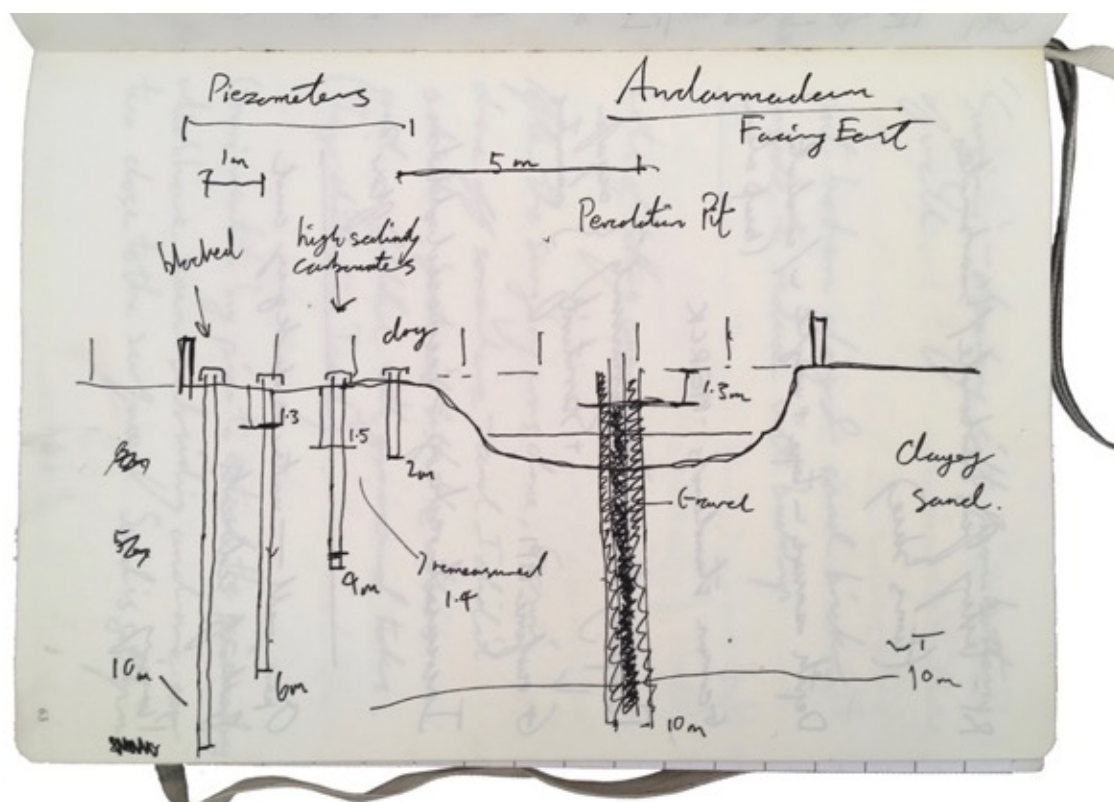 Piezometers
Andarmadam
Facing East
1m
5m
Percolation Pit
blocked
high salinity
carbonates
clay
1.3m
1.3
1.5
2m
Clayey
sand.
Gravel
remeasured
1.4
4m
10m
6m
WT
10m
10m